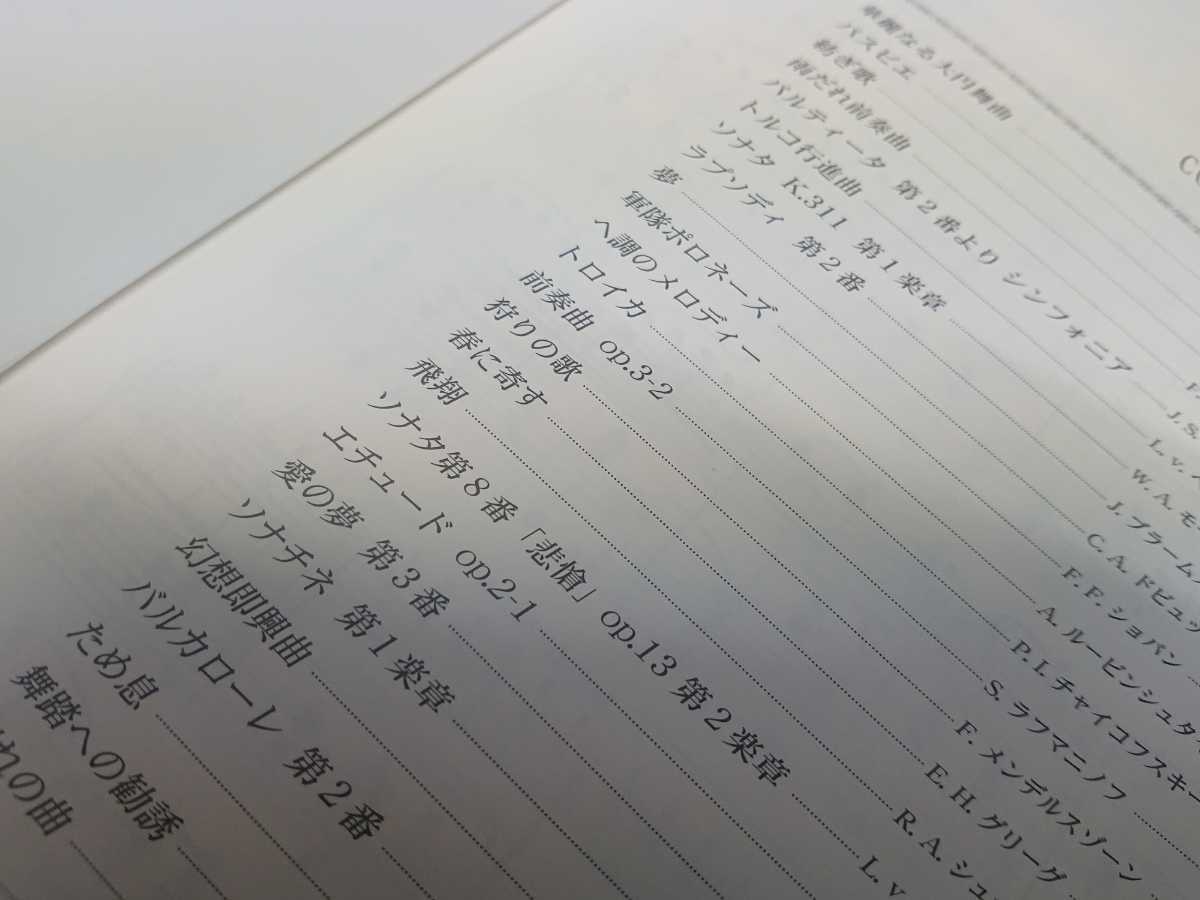 CO
華麗なる大円舞曲
パスピエ
紡ぎ歌
雨だれ前奏曲 F.
パルティータ 第2番より シンフォニア J.S.
トルコ行進曲 L. v.
ソナタ K.311 第1楽章 W. A. モ
ラプソディ 第2番 J. ブラーム
夢 C. A. ドビュッ
軍隊ポロネーズ F. F. ショパン
ヘ調のメロディー A. ルービンシュタ
トロイカ P. I. チャイコフスキー
前奏曲 op.3-2 S. ラフマニノフ
狩りの歌 F. メンデルスゾーン
春に寄す E. H. グリーグ
飛翔 R. A. シュ
ソナタ第8番「悲愴」op.13 第2楽章 L. v
エチュード op.2-1
愛の夢 第3番
ソナチネ 第1楽章
幻想即興曲
バルカローレ 第2番
ため息
舞踏への勧誘
れの曲